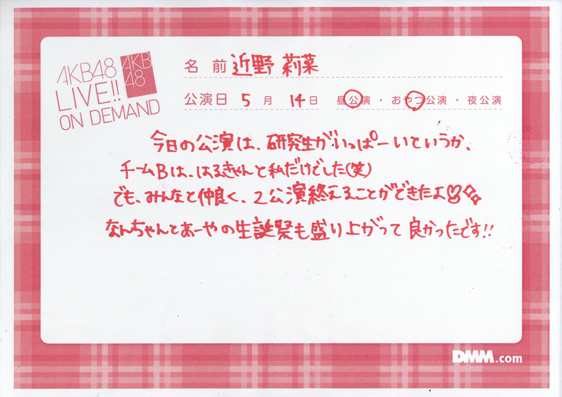 AKB48
LIVE!!
ON DEMAND
AKB
48
名 前 近野 莉菜
公演日 5 月 14 日 昼公演・おやつ公演・夜公演
今日の公演は、研究生がいっぱーいというか、
チームBは、はるきゃんと私だけでした(笑)
でも、みんなと仲良く、2公演終えることができたよ♡
なんちゃんとあーやの生誕祭も盛り上がって良かったです!!
DMM.com